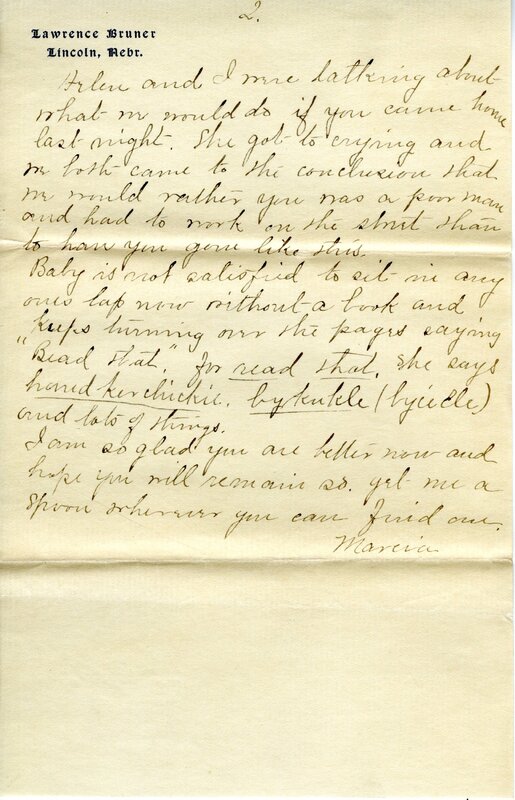 2.
Lawrence Bruner
Lincoln, Nebr.
Helen and I were talking about
what we would do if you came home
last night. She got to crying and
we both came to the conclusion that
we would rather you was a poor man
and had to work on the street than
to have you gone like this.
Baby is not satisfied to sit in any
ones lap now without a book and
keeps turning over the pages saying
"Bead that". for read that. She says
handkerchickie. bykukle (bycicle)
and lots of things.
I am so glad you are better now and
hope you will remain so. get me a
spoon wherever you can find one.
Marcia